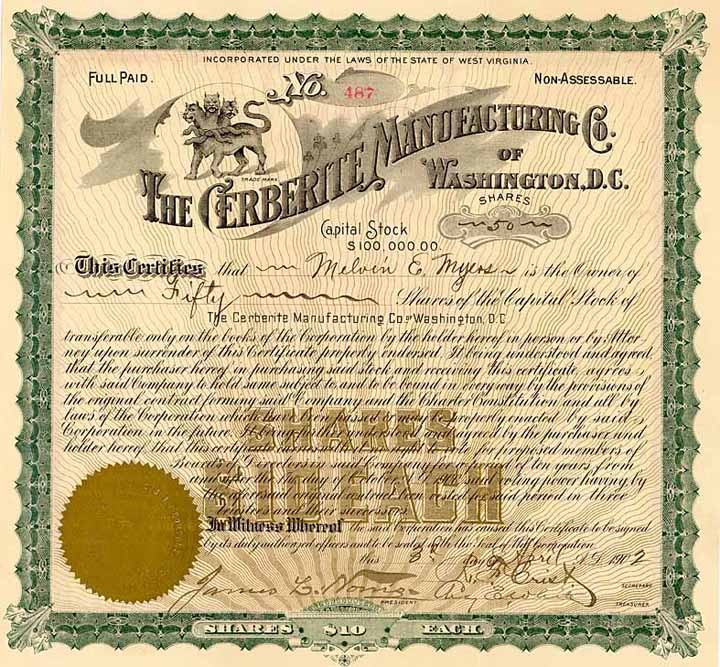 INCORPORATED UNDER THE LAWS OF THE STATE OF WEST VIRGINIA.
FULL PAID.
No. 487
NON-ASSESSABLE.
TRADE MARK
THE CERBERITE MANUFACTURING CO.
OF
WASHINGTON, D.C.
SHARES
50
Capital Stock
$100,000.00.
This Certifies that Melvin E. Myers is the Owner of
Fifty Shares of the Capital Stock of
The Cerberite Manufacturing Co. of Washington, D.C.
transferable only on the books of the Corporation by the holder hereof in person or by Attor
ney upon surrender of this Certificate properly endorsed. It being understood and agreed
that the purchaser hereof in purchasing said stock and receiving this certificate, agrees
with said Company to hold same subject to and to be bound in every way by the provisions
of the original contract forming said Company and the Charter Constitution and all by
laws of the Corporation which have been passed or may be properly enacted by said
Corporation in the future. It being also understood and agreed by the purchaser and
holder hereof that this certificate for proposed members of
Board of Directors in said Company for a period of ten years from
and after the day of said voting power having by
the aforesaid original contract been vested for said period in three
trustees and their successors.
SHARES
$10 EACH
In Witness Whereof the said Corporation has caused this Certificate to be signed
by its duly authorized officers and to be sealed with the Seal of the Corporation
this 3 day of April A.D. 1902
James L.
PRESIDENT
Crist
SECRETARY
TREASURER
SHARES $10 EACH.